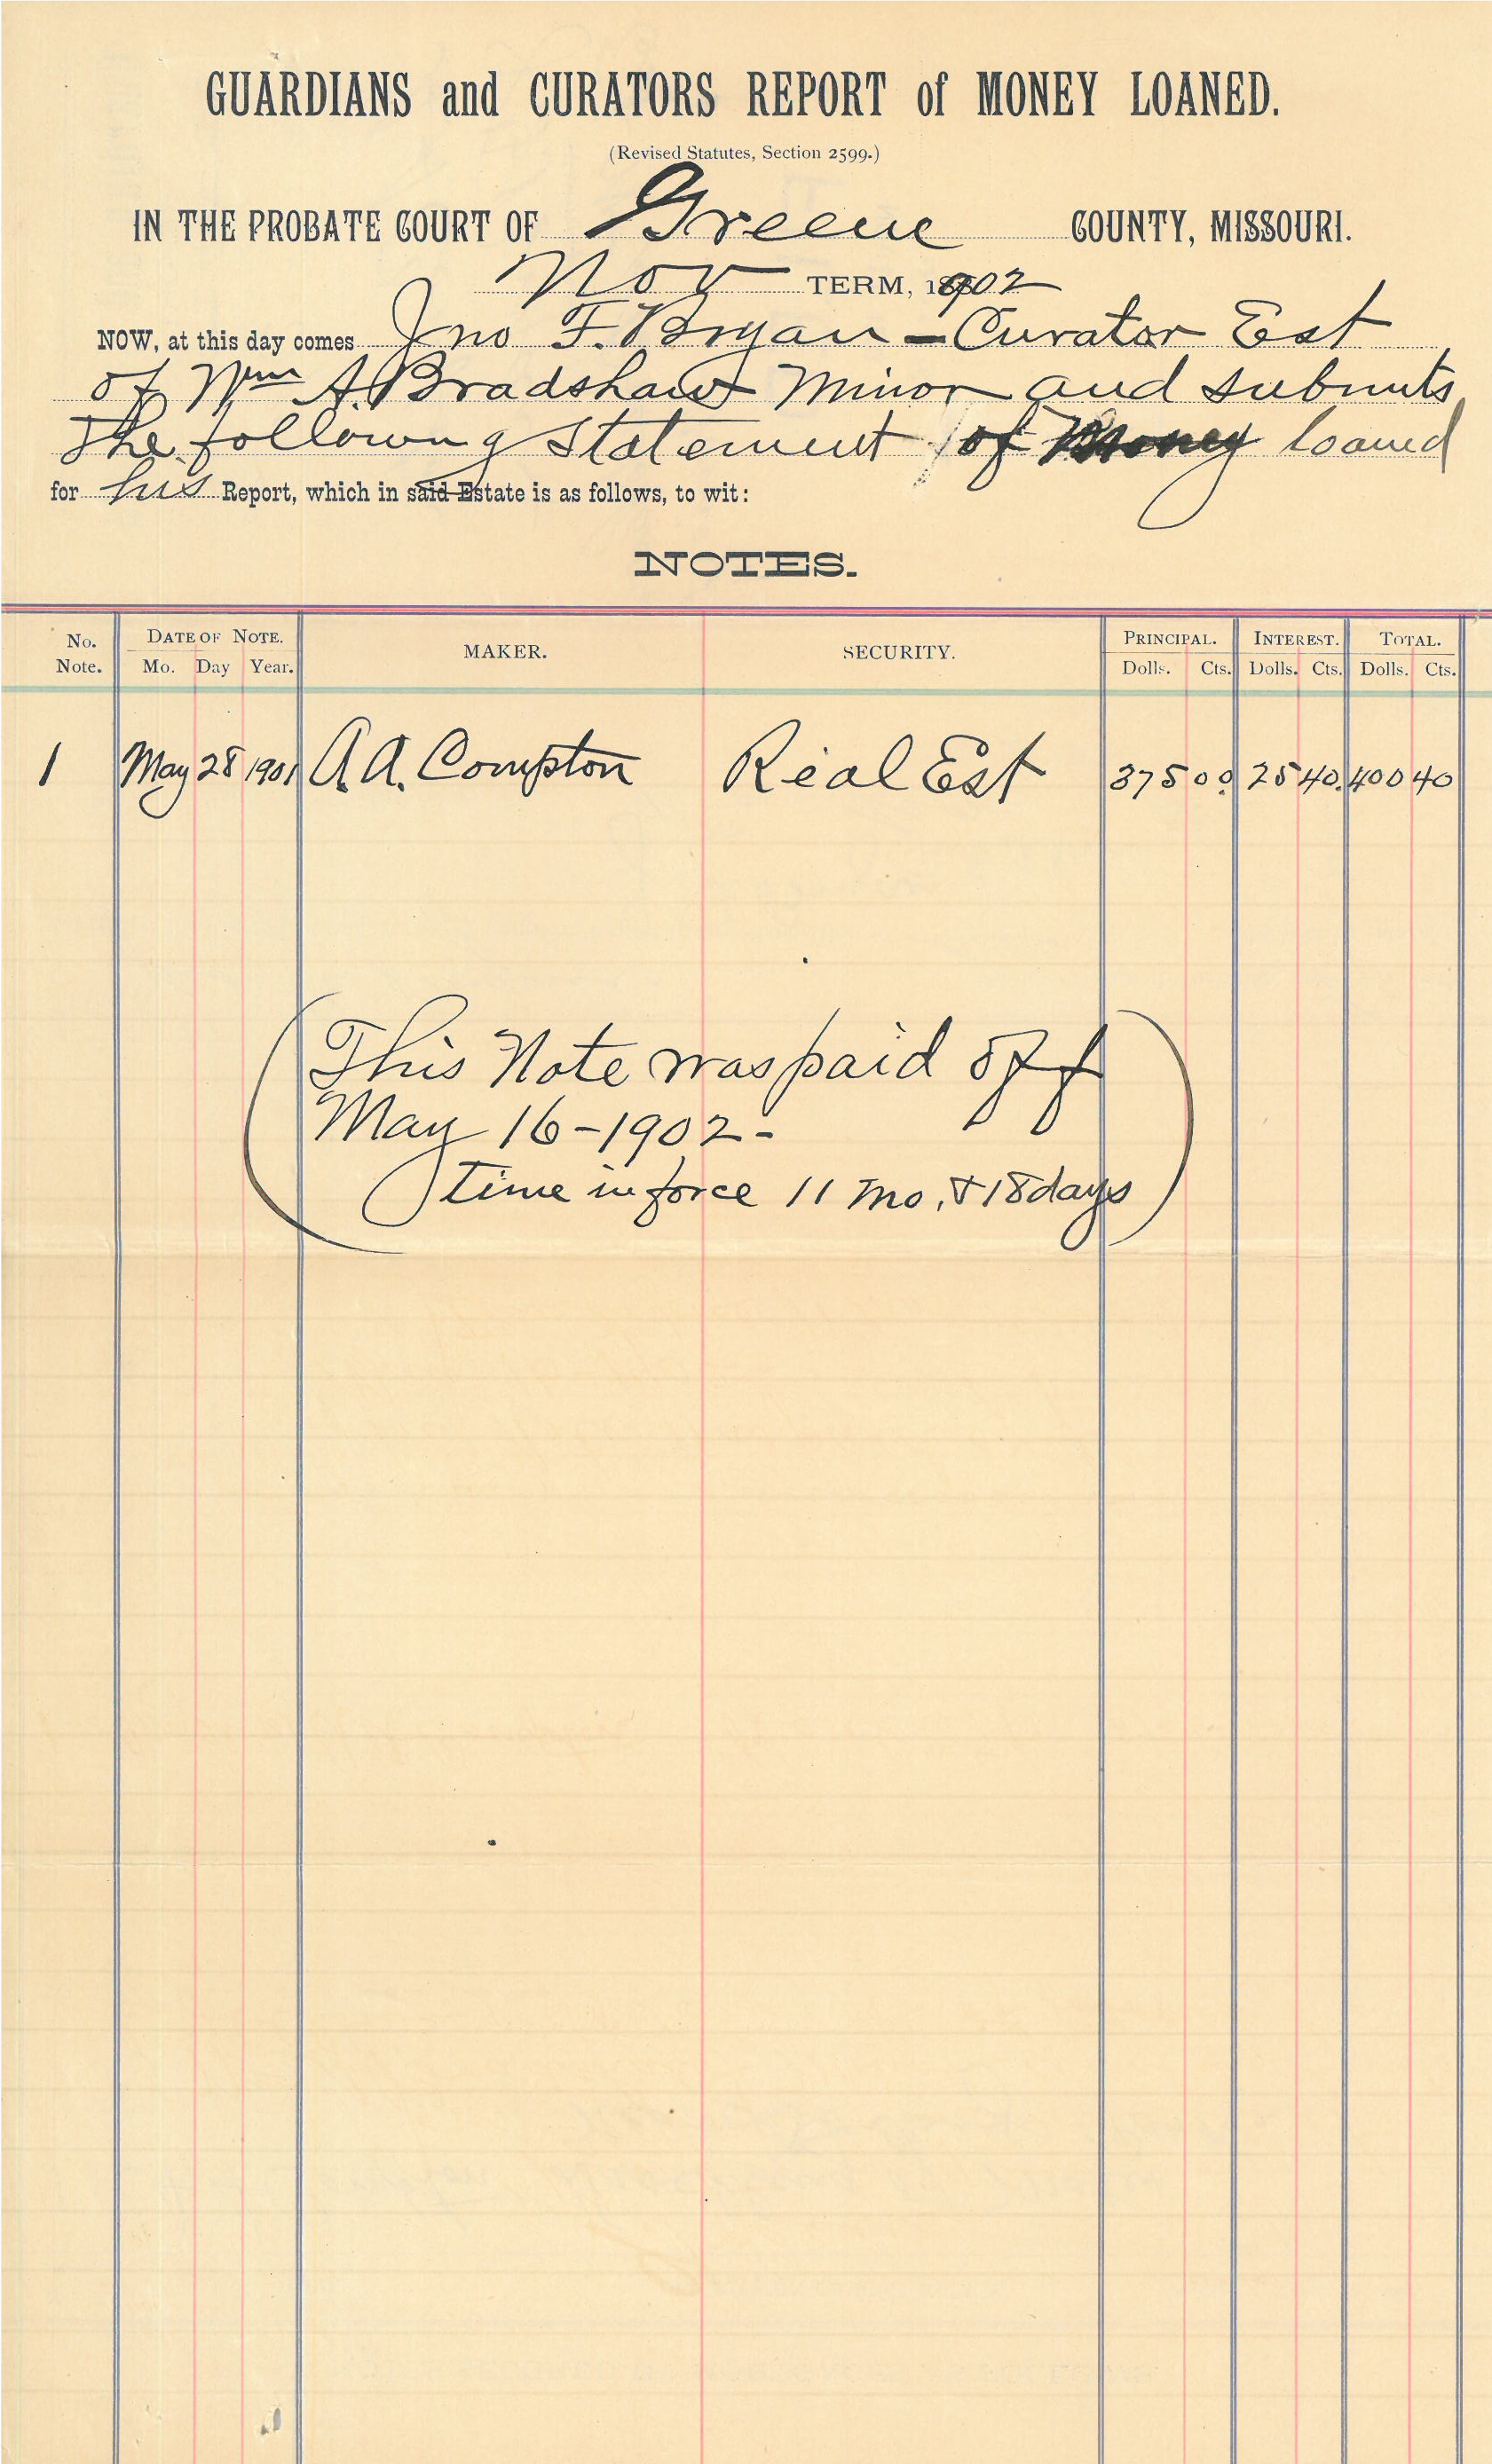 GUARDIANS and CURATORS REPORT of MONEY LOANED.
(Revised Statutes, Section 2599.)
IN THE PROBATE COURT OF Greene COUNTY, MISSOURI.
Nov TERM, 1902
NOW, at this day comes Jno F. Bryan - Curator Est
of Wm A. Bradshaw Minor and submits
the following statement of Money loaned
for his Report, which in said Estate is as follows, to wit:
NOTES.
No. Note. DATE OF NOTE. Mo. Day Year. MAKER. SECURITY. PRINCIPAL. Dolls. Cts. INTEREST. Dolls. Cts. TOTAL. Dolls. Cts.
1 May 28 1901 A. A. Compton Real Est 375 00 25 40 400 40
(This Note was paid off
May 16-1902-
time in force 11 mo. & 18 days)